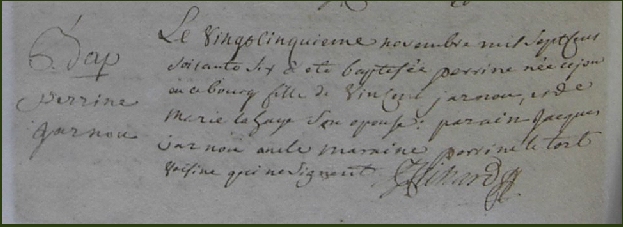 Bap
perrine
jarnou
Le vingtcinquieme novembre mil Sept cens
soisante six a eté baptesée perrine née ce jour
en ce bourg fille de Vincent jarnou, et de
marie la haye Son epouse: parain Jacques
jarnou oncle maraine perrine le tort
voisine qui ne signent